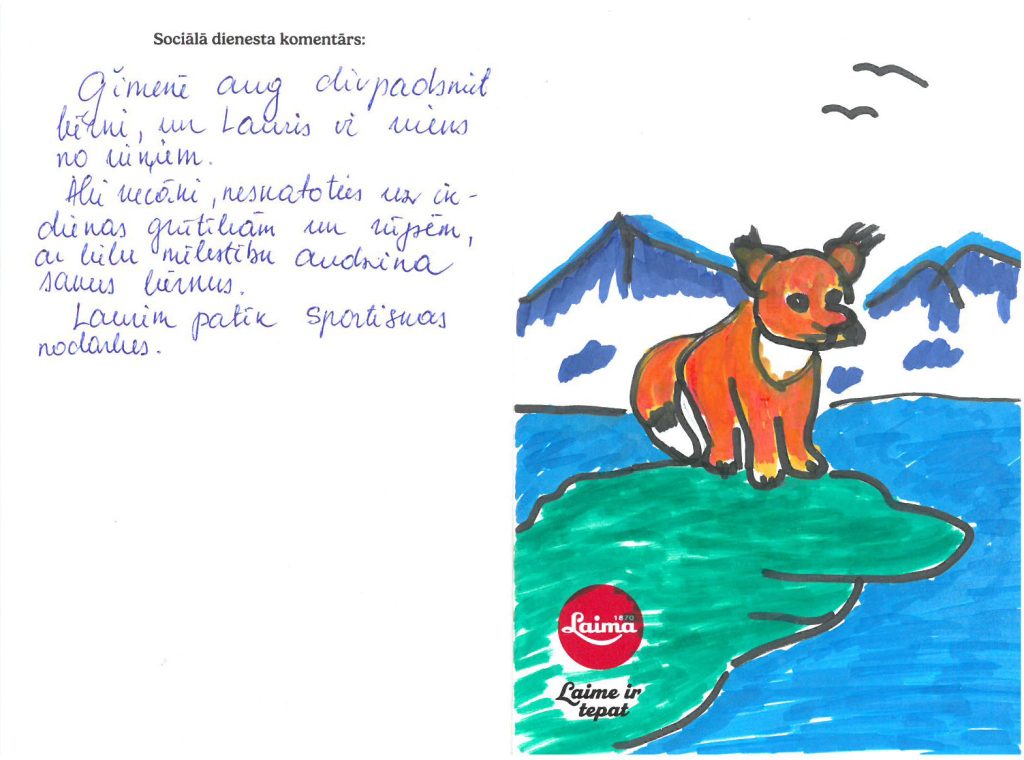 Sociālā dienesta komentārs:
Ģimenē aug divpadsmit
bērni, un Lauris ir viens
no viņiem.
Abi vecāki, neskatoties uz ik-
dienas grūtībām un rūpēm,
ar lielu mīlestību audzina
savus bērnus.
Laurim patīk sportiskas
nodarbes.
1870
Laima
Laime ir
tepat